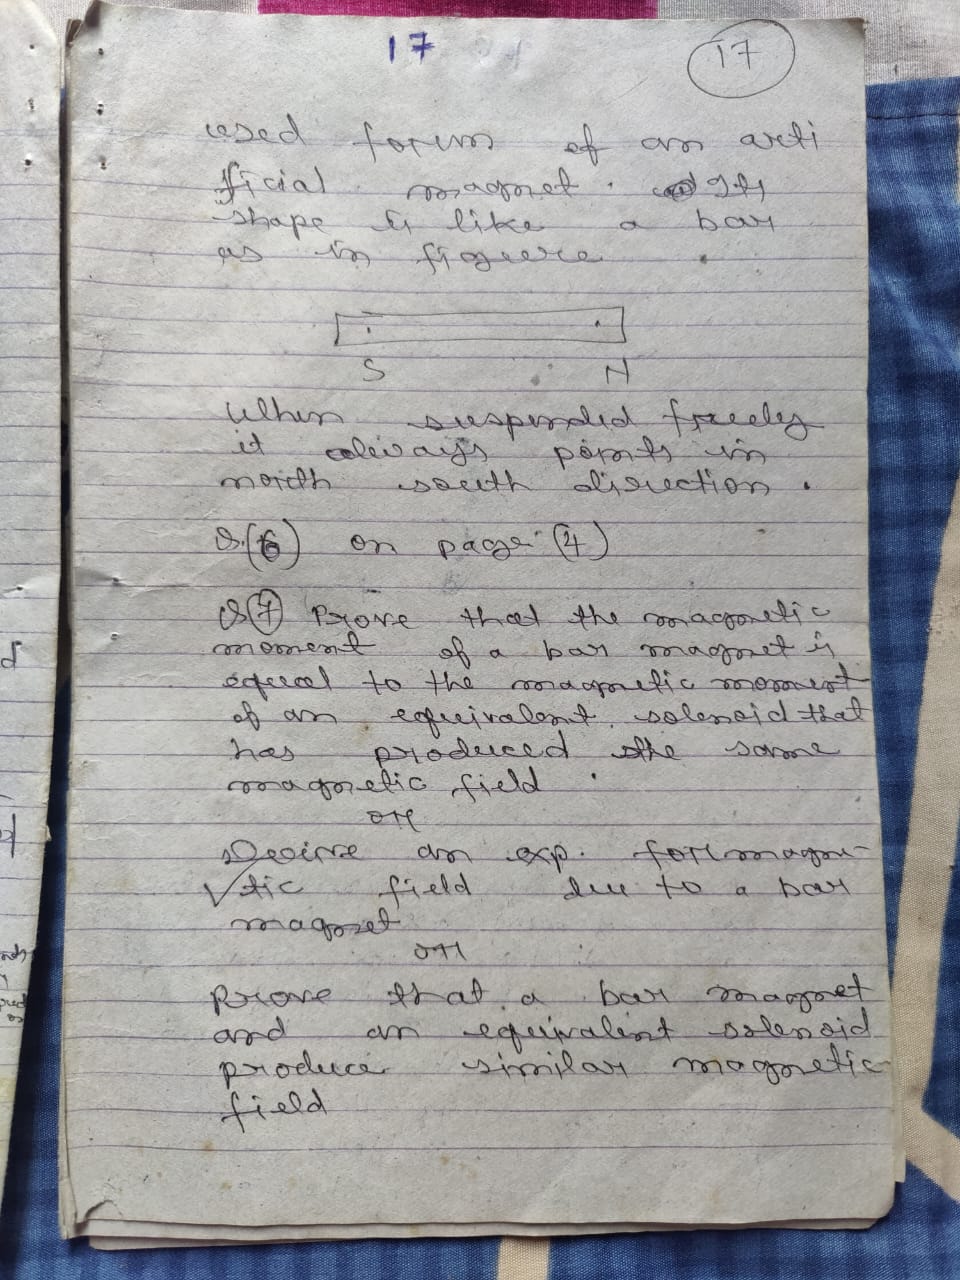 17
17
used form of an arti
ficial magnet. Its
shape is like a bar
as in figure
S N
When suspended freely
it always points in
north south direction.
Q.(6) on page (4)
Q(7) Prove that the magnetic
moment of a bar magnet is
equal to the magnetic moment
of an equivalent solenoid that
has produced the same
magnetic field.
or
Derive an exp. for magne-
tic field due to a bar
magnet
or
Prove that a bar magnet
and an equivalent solenoid
produce similar magnetic
field